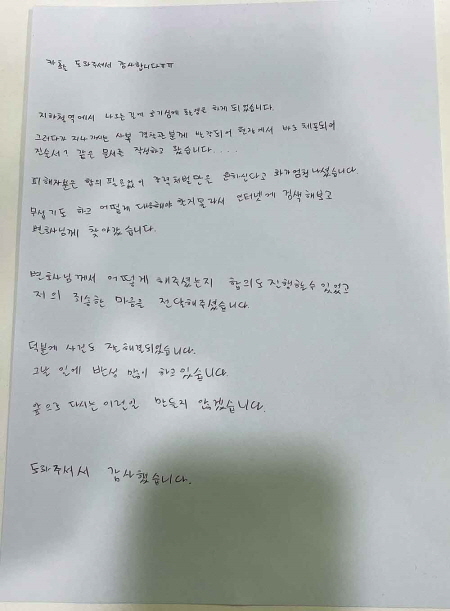 도와주셔서 감사합니다ㅠㅠ
지하철역에서 나오는 길에 호기심에 촬영을 하게 되었습니다.
그러다가 지나가시는 사복 경찰관분께 발각되어 현장에서 바로 체포되어
진술서? 같은 문서를 작성하고 왔습니다....
피해자분은 합의 필요없이 강력처벌만을 원하신다고 화가 엄청 나셨습니다.
무섭기도 하고 어떻게 대응해야 할지 몰라서 인터넷에 검색해보고
변호사님께 찾아갔습니다.
변호사님께서 어떻게 해주셨는지 합의도 진행할수 있었고
저의 죄송한 마음을 전달해주셨습니다.
덕분에 사건도 잘 해결되었습니다.
그날 일에 반성 많이 하고 있습니다.
앞으로 다시는 이런일 만들지 않겠습니다.
도와주셔서 감사했습니다.